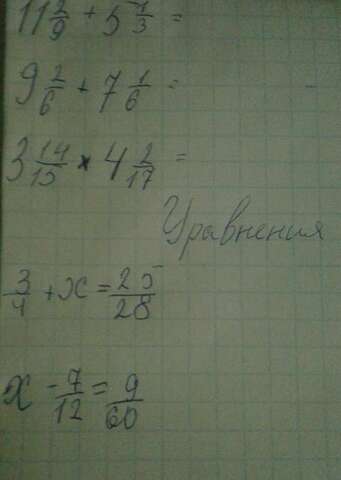 11 2/9 + 5 1/3 =
9 2/6 + 7 1/6 =
3 14/15 × 4 2/17 =
Уравнения
3/4 + x = 25/28
x - 7/12 = 9/60